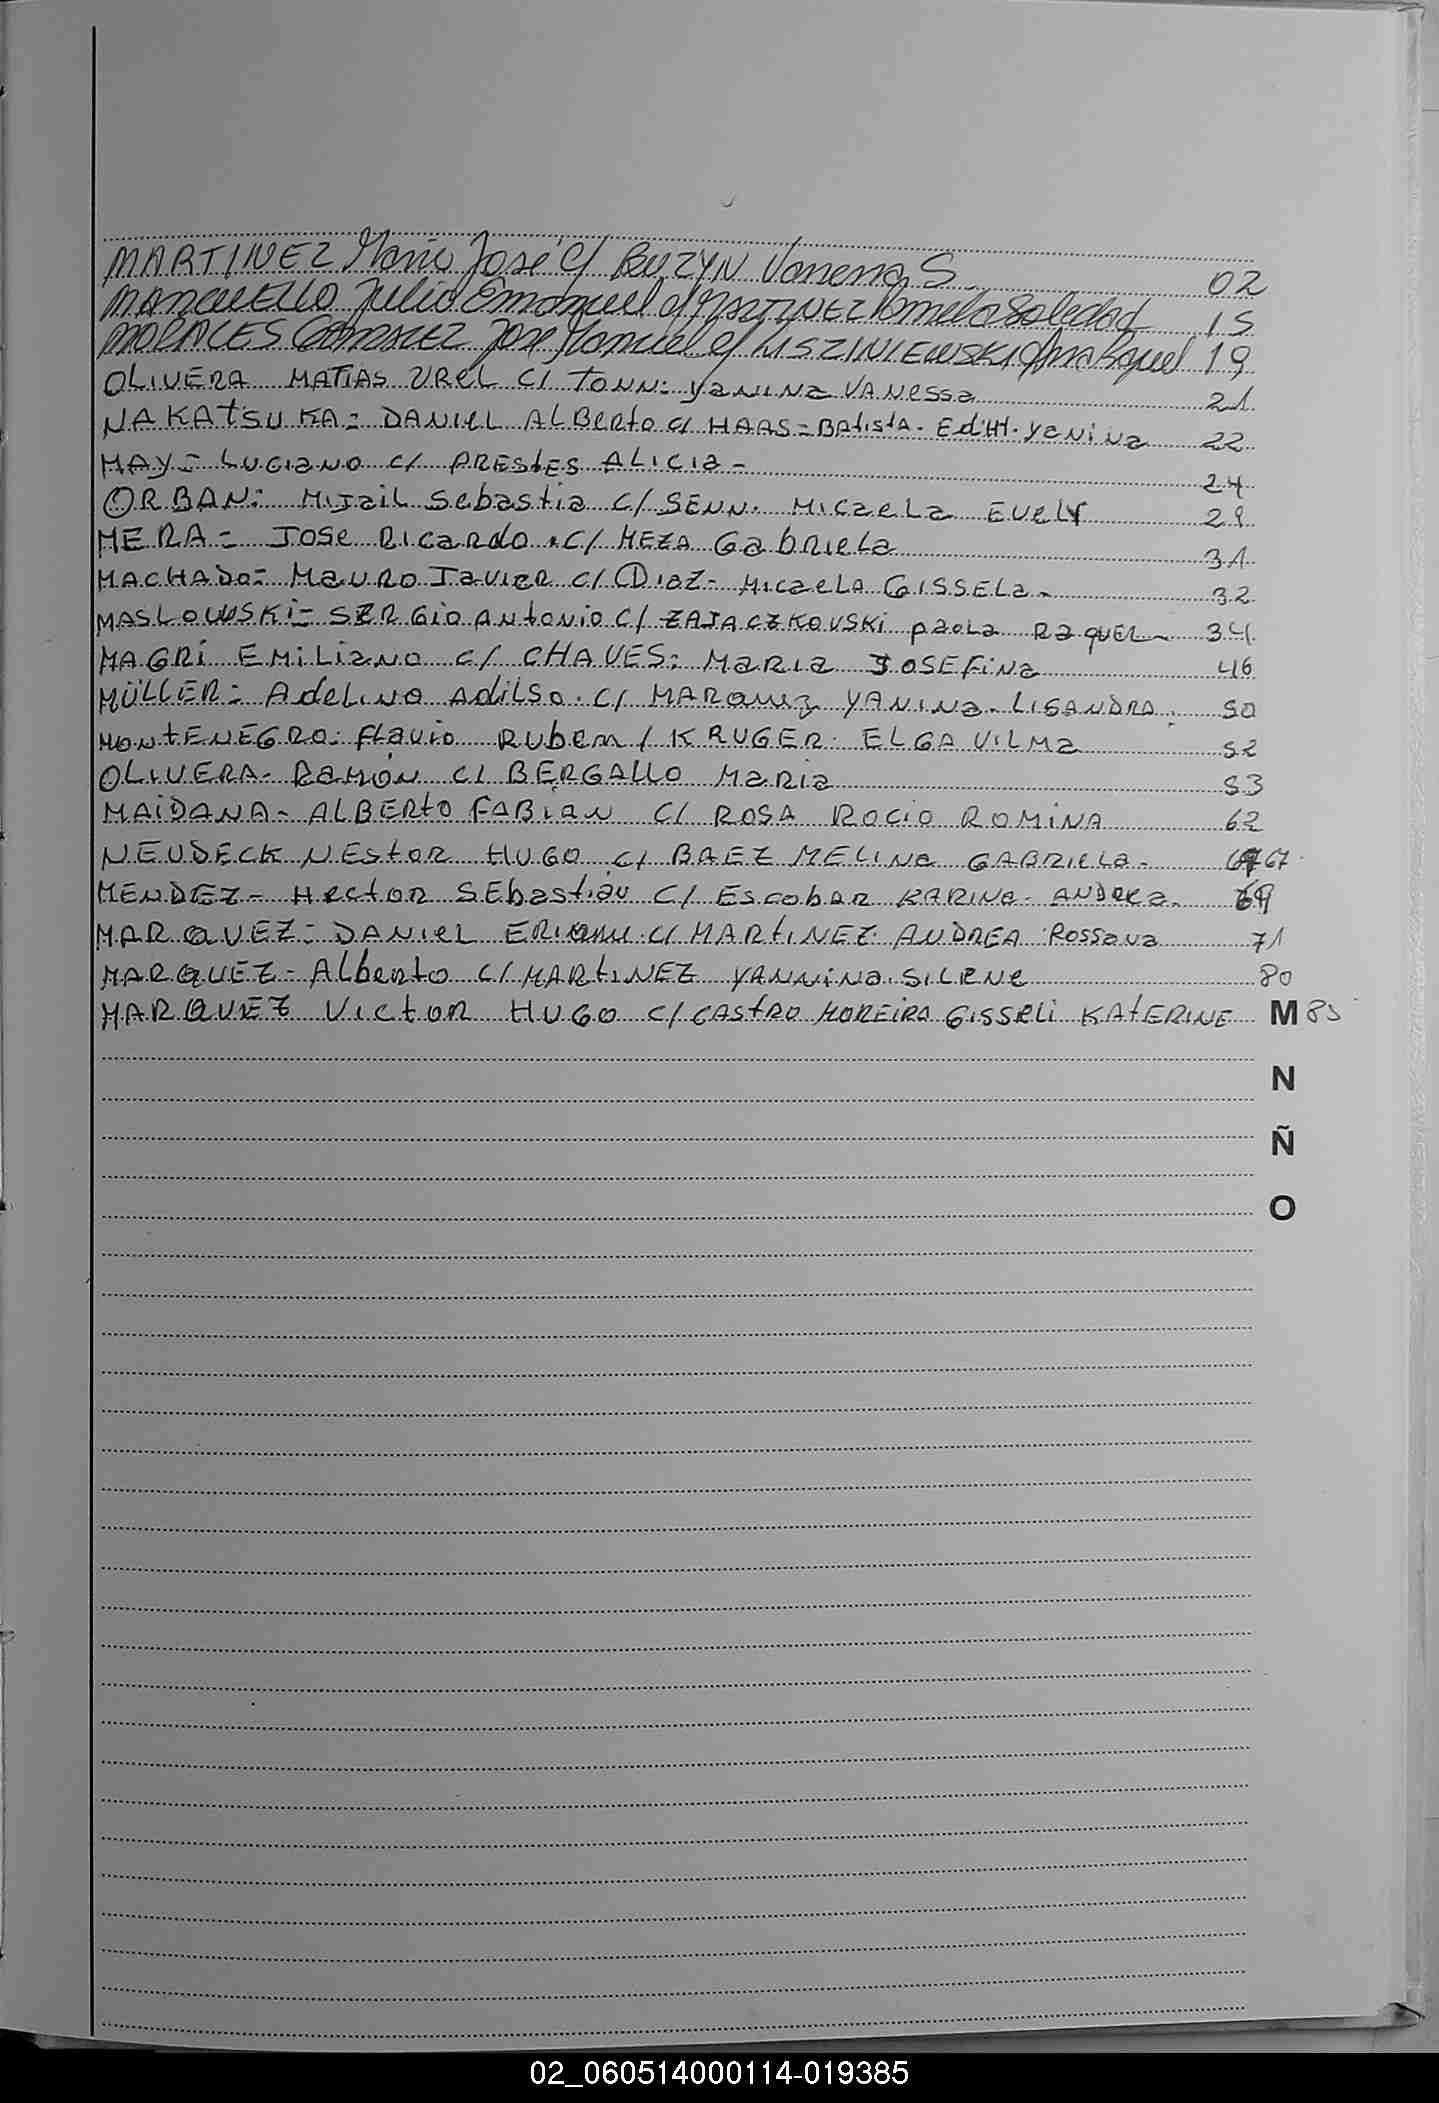 MARTINEZ Mario José c/ BUZYN Vanena S. 02
MANCUELLO Julio Emanuel c/ MARTINEZ Pamela Soledad 15
MORALES GONZALEZ José Manuel c/ LISZINIEWSKI Ana Raquel 19
OLIVERA MATIAS UREL C/ TONN: yanina VANessa 21
NAKATSUKA = DANIEL ALBerto c/ HAAS = BAtistA. Edith. yanina 22
MAY = Luciano c/ PRESTES ALICIA - 24
ORBAN: Mijail Sebastia c/ SENN. Micaela EVELY 29
MERA = Jose Ricardo . c/ MEZA Gabriela 31
MACHADO = MAURO JAVIER c/ Diaz = MicaeLA GISSELa - 32
MASLOWSKI = SERGio Antonio c/ ZAJACZKOVSKi paola Raquel - 34
MAGRi EMiLiano c/ CHAVES: MARIA JOSEFina 46
MÜLLER = AdeLino AdiLso. c/ MARquez YANina. LISANDRA. 50
MontENEGRO: Flavio Ruben / KRUGER. ELGA VILMA 52
OLIVERA - RAMóN c/ BERGALLO MARIA 53
MAIDANA - ALBERto FABiAN c/ ROSA ROCIO ROMINA 62
NEUDECK NEStOR HUGO c/ BAEZ MELINA GABRIELA - 67
MENDEZ - HectOR SEbastian c/ Escobar KARINA. ANDREA. 69
MARQUEZ = DANiEL c/ MARtiNEZ ANDREA Rossana 71
MARQUEZ = Alberto c/ MARtiNEZ YANNINA SILENE 80
MARQUEZ VictOR HUGO c/ CAStRO MOREiRA GissELi KAtERINE M 83
N
Ñ
O
02_060514000114-019385